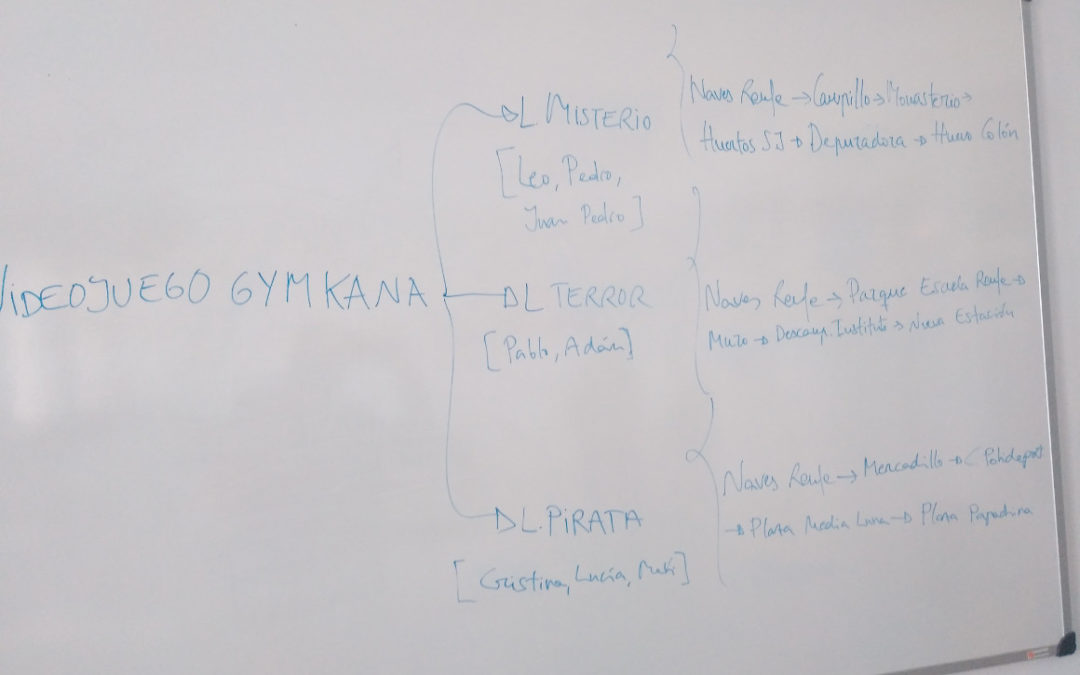 VIDEOJUEGO GYMKANA
L MISTERIO
[Leo, Pedro,
Juan Pedro]
Naves Renfe → Campillo → Monasterio →
Huertos SJ → Depuradora → Huevo Colón
L TERROR
[Pablo, Adán]
Naves Renfe → Parque Escuela Renfe →
Muro → Descamp. Instituto → Nueva Estación
L. PIRATA
[Cristina, Lucía,
Naves Renfe → Mercadillo → Polideport
→ Plaza Media Luna → Plaza